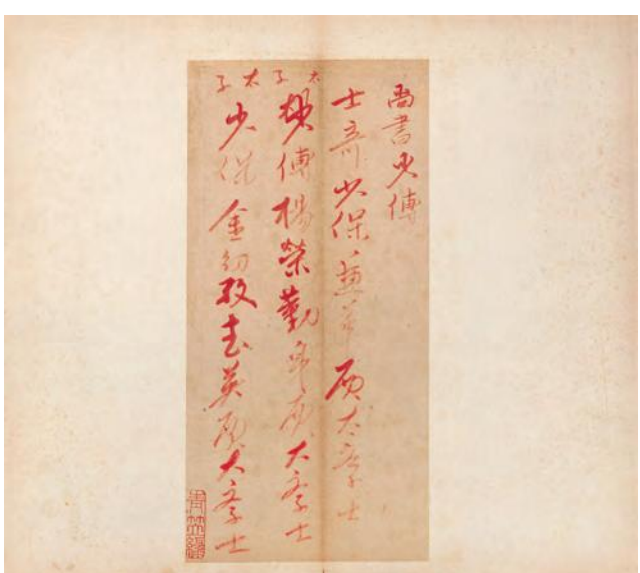 尚書少傅
士奇少保兼華殿大學士
太子
傅楊榮謹身殿大學士
太子
少保金幼孜武英殿大學士